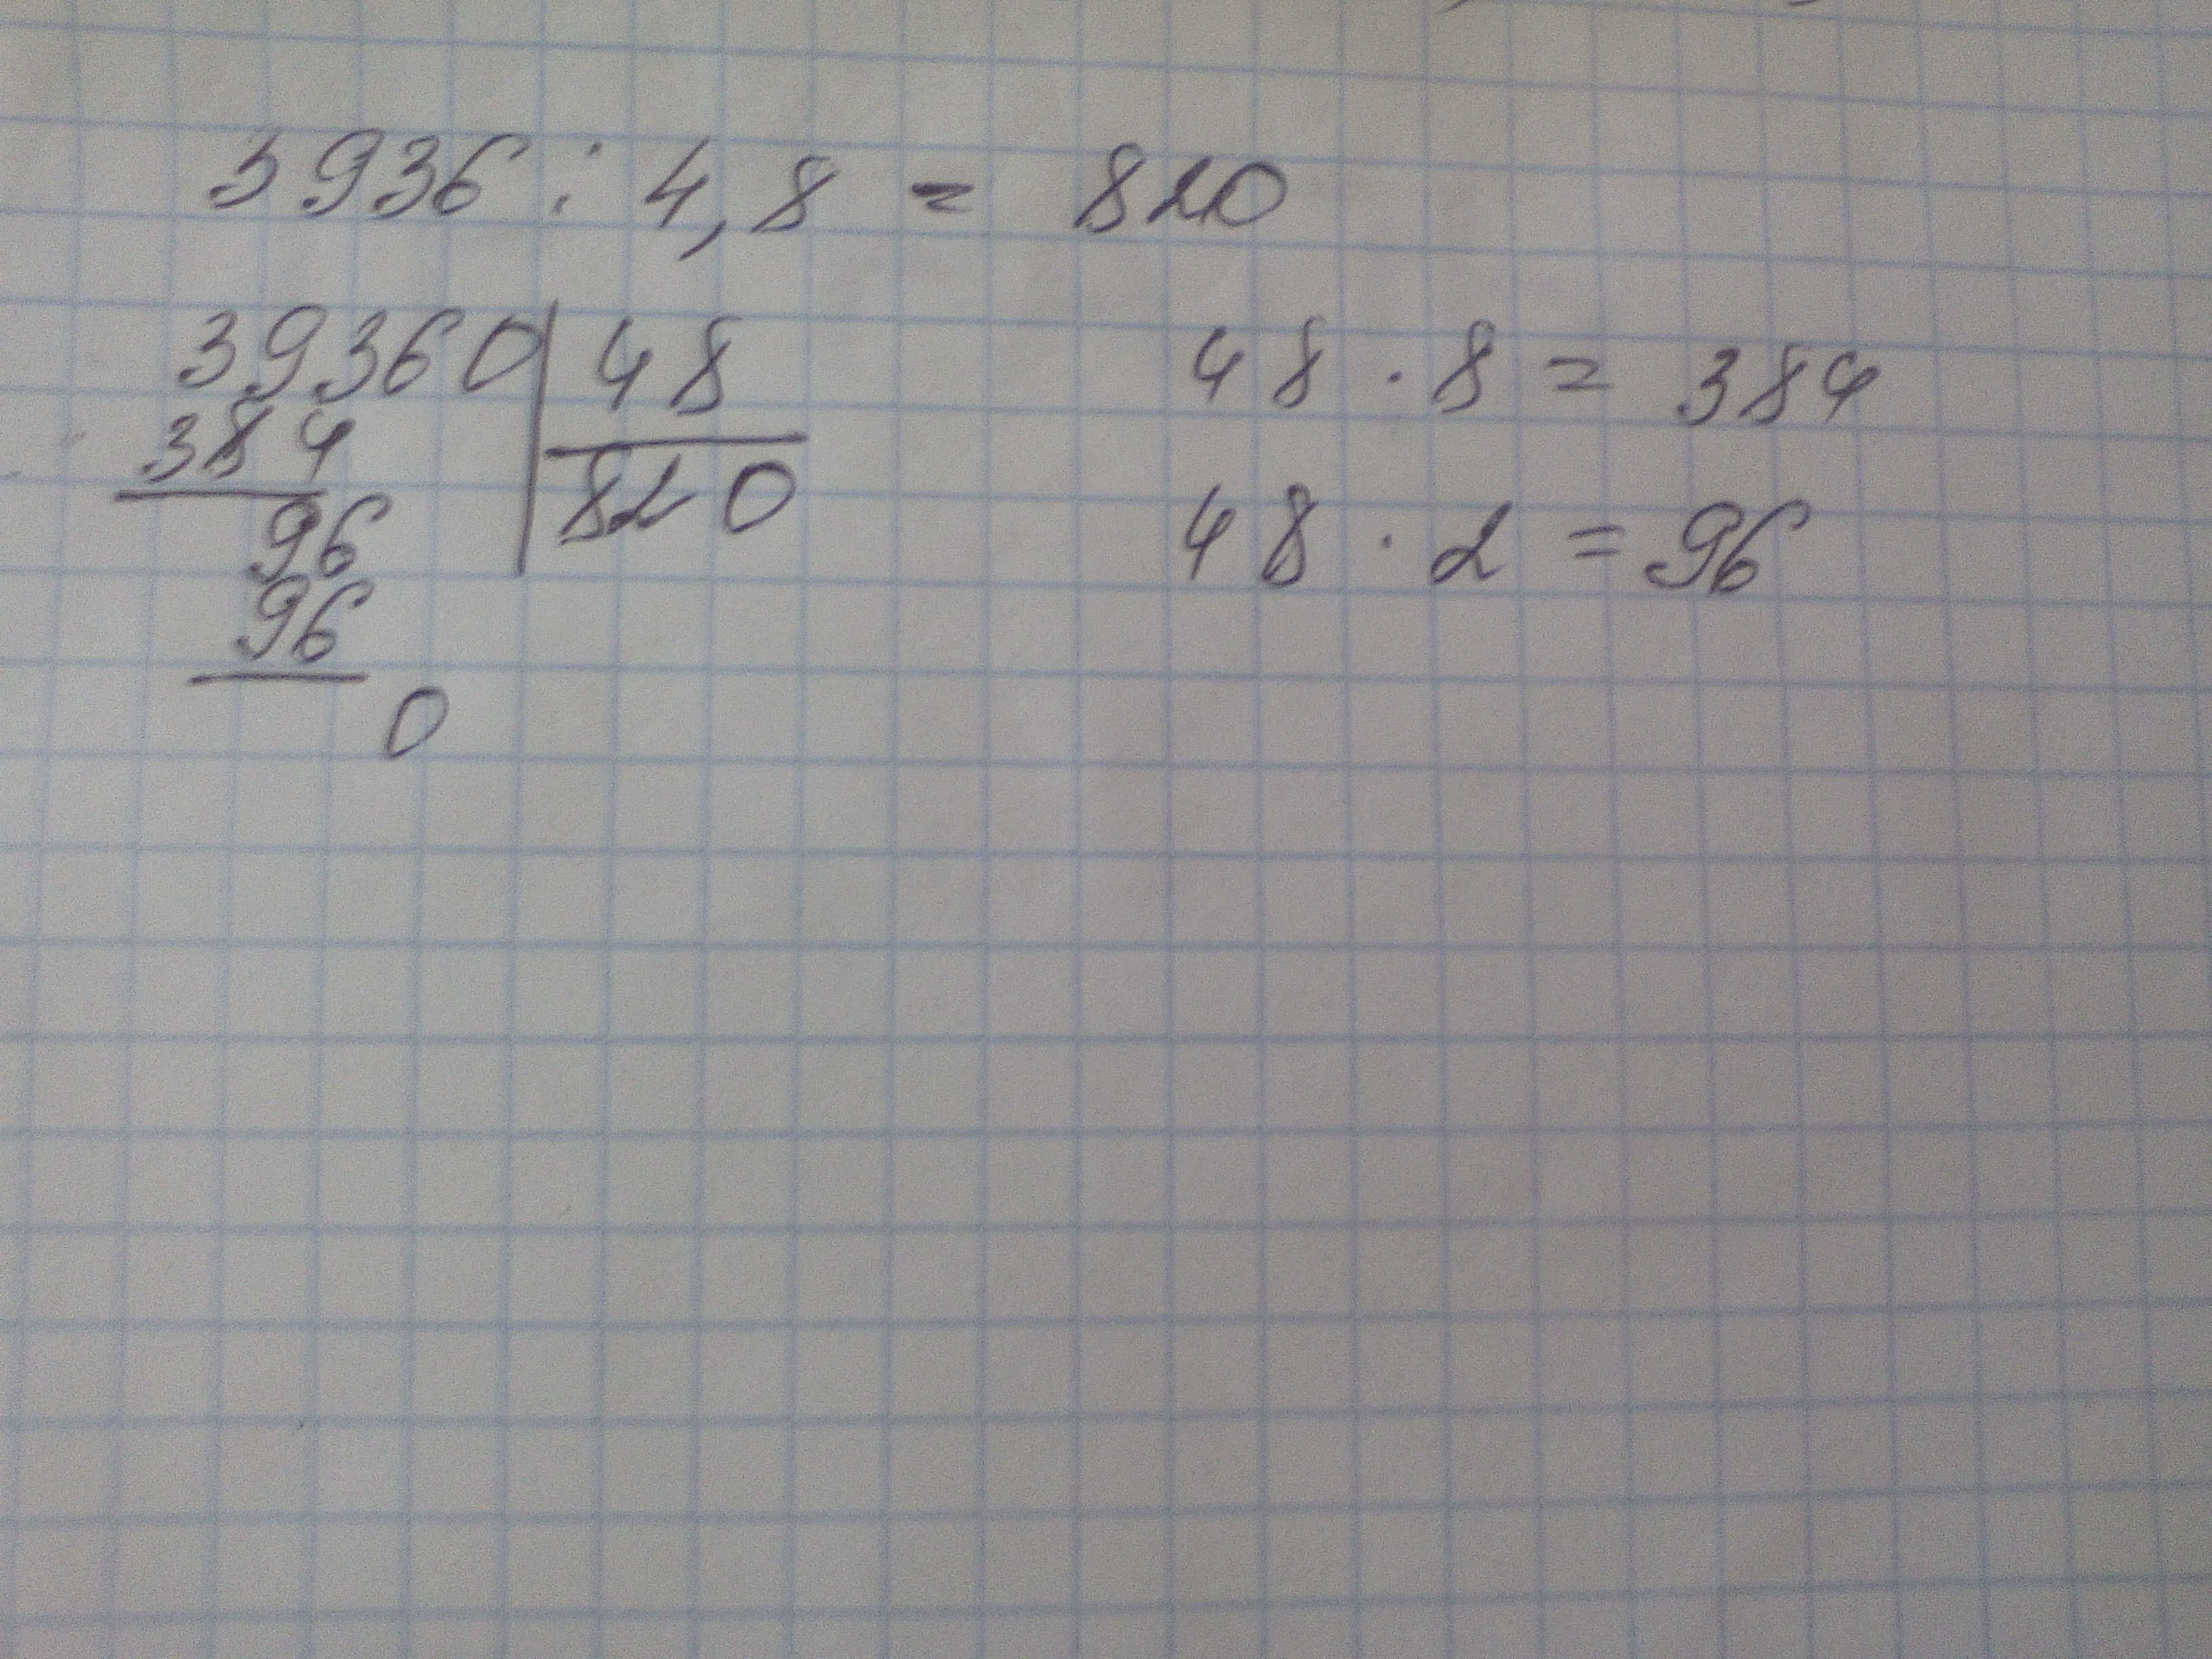 3936 : 4,8 = 820
39360 | 48
384
820
96
96
0
48 · 8 = 384
48 · 2 = 96